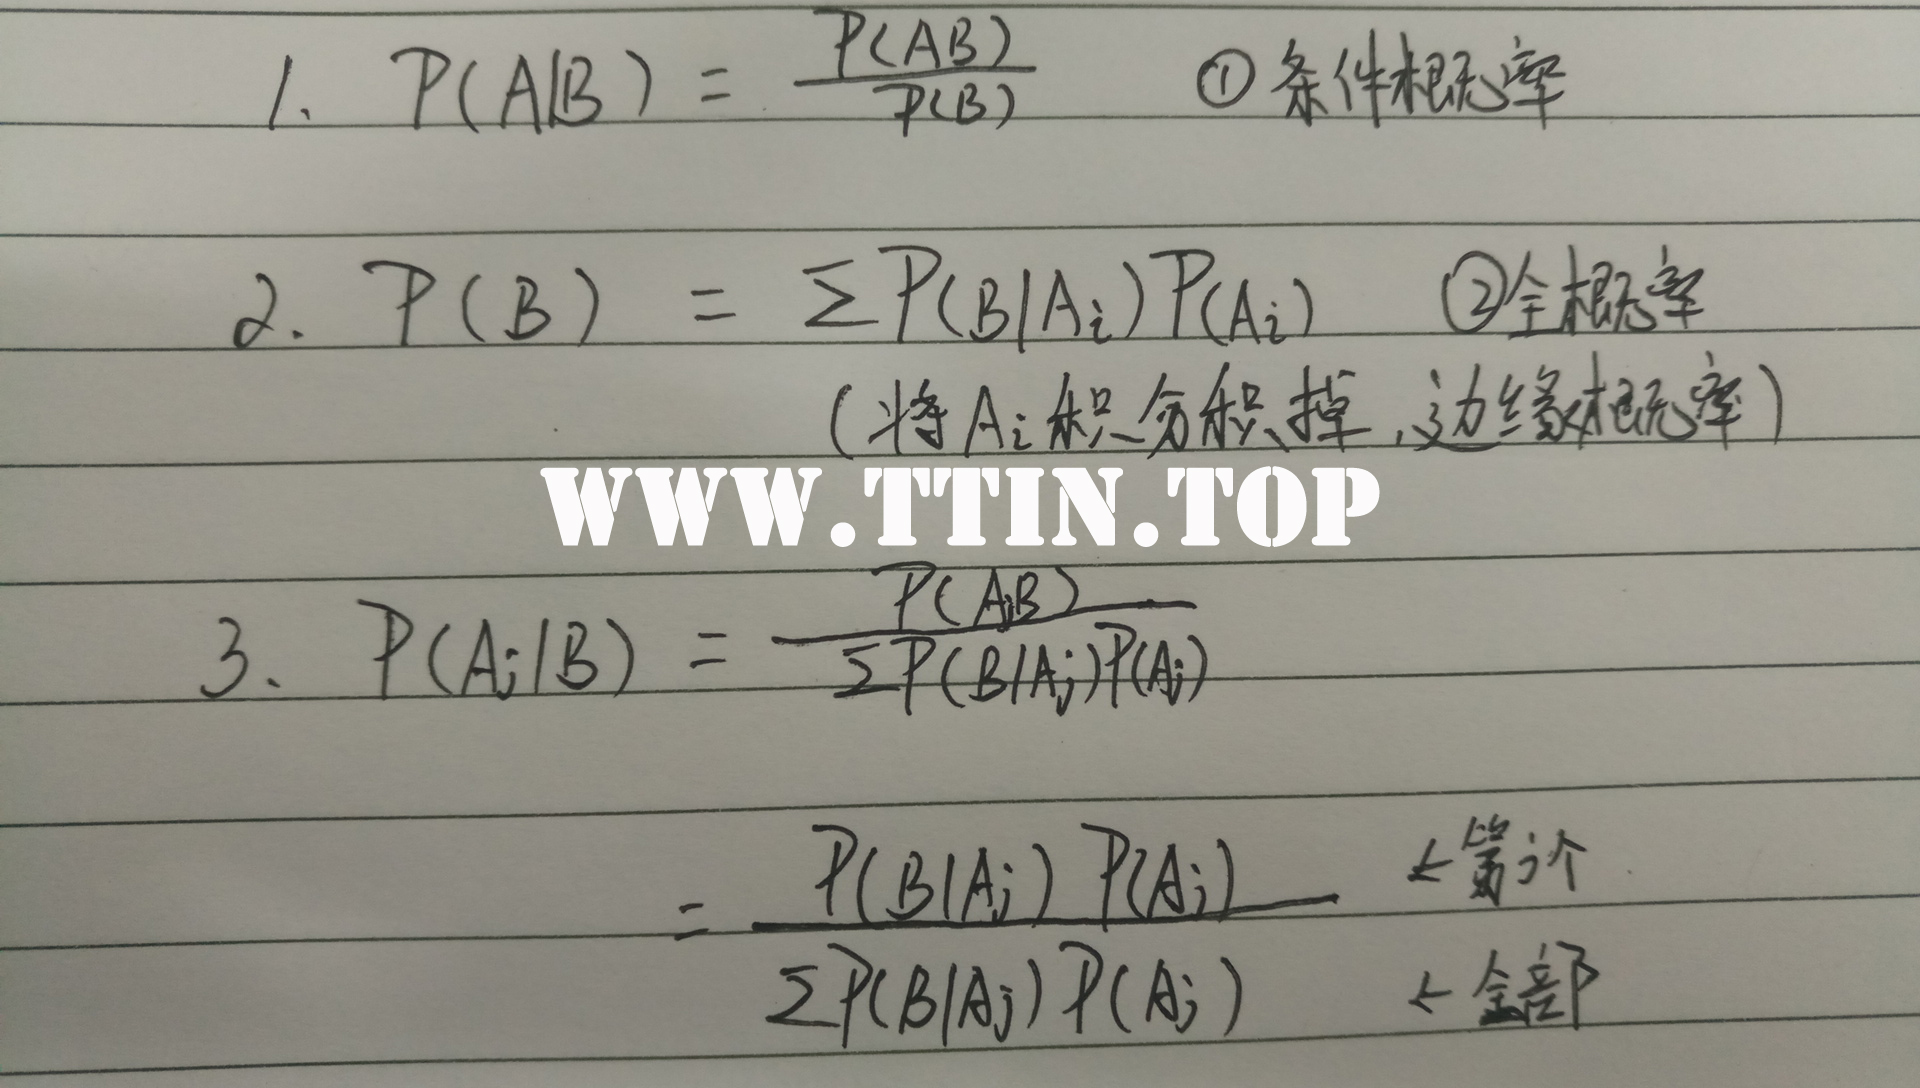 1. P(A|B) = P(AB) / P(B) ① 条件概率
2. P(B) = ΣP(B|Ai)P(Ai) ②全概率
(将Ai积分积掉,边缘概率)
WWW.TTIN.TOP
3. P(Aj|B) = P(AjB) / ΣP(B|Aj)P(Aj)
= P(B|Aj) P(Aj) / ΣP(B|Aj)P(Aj)
← 第i个
← 全部